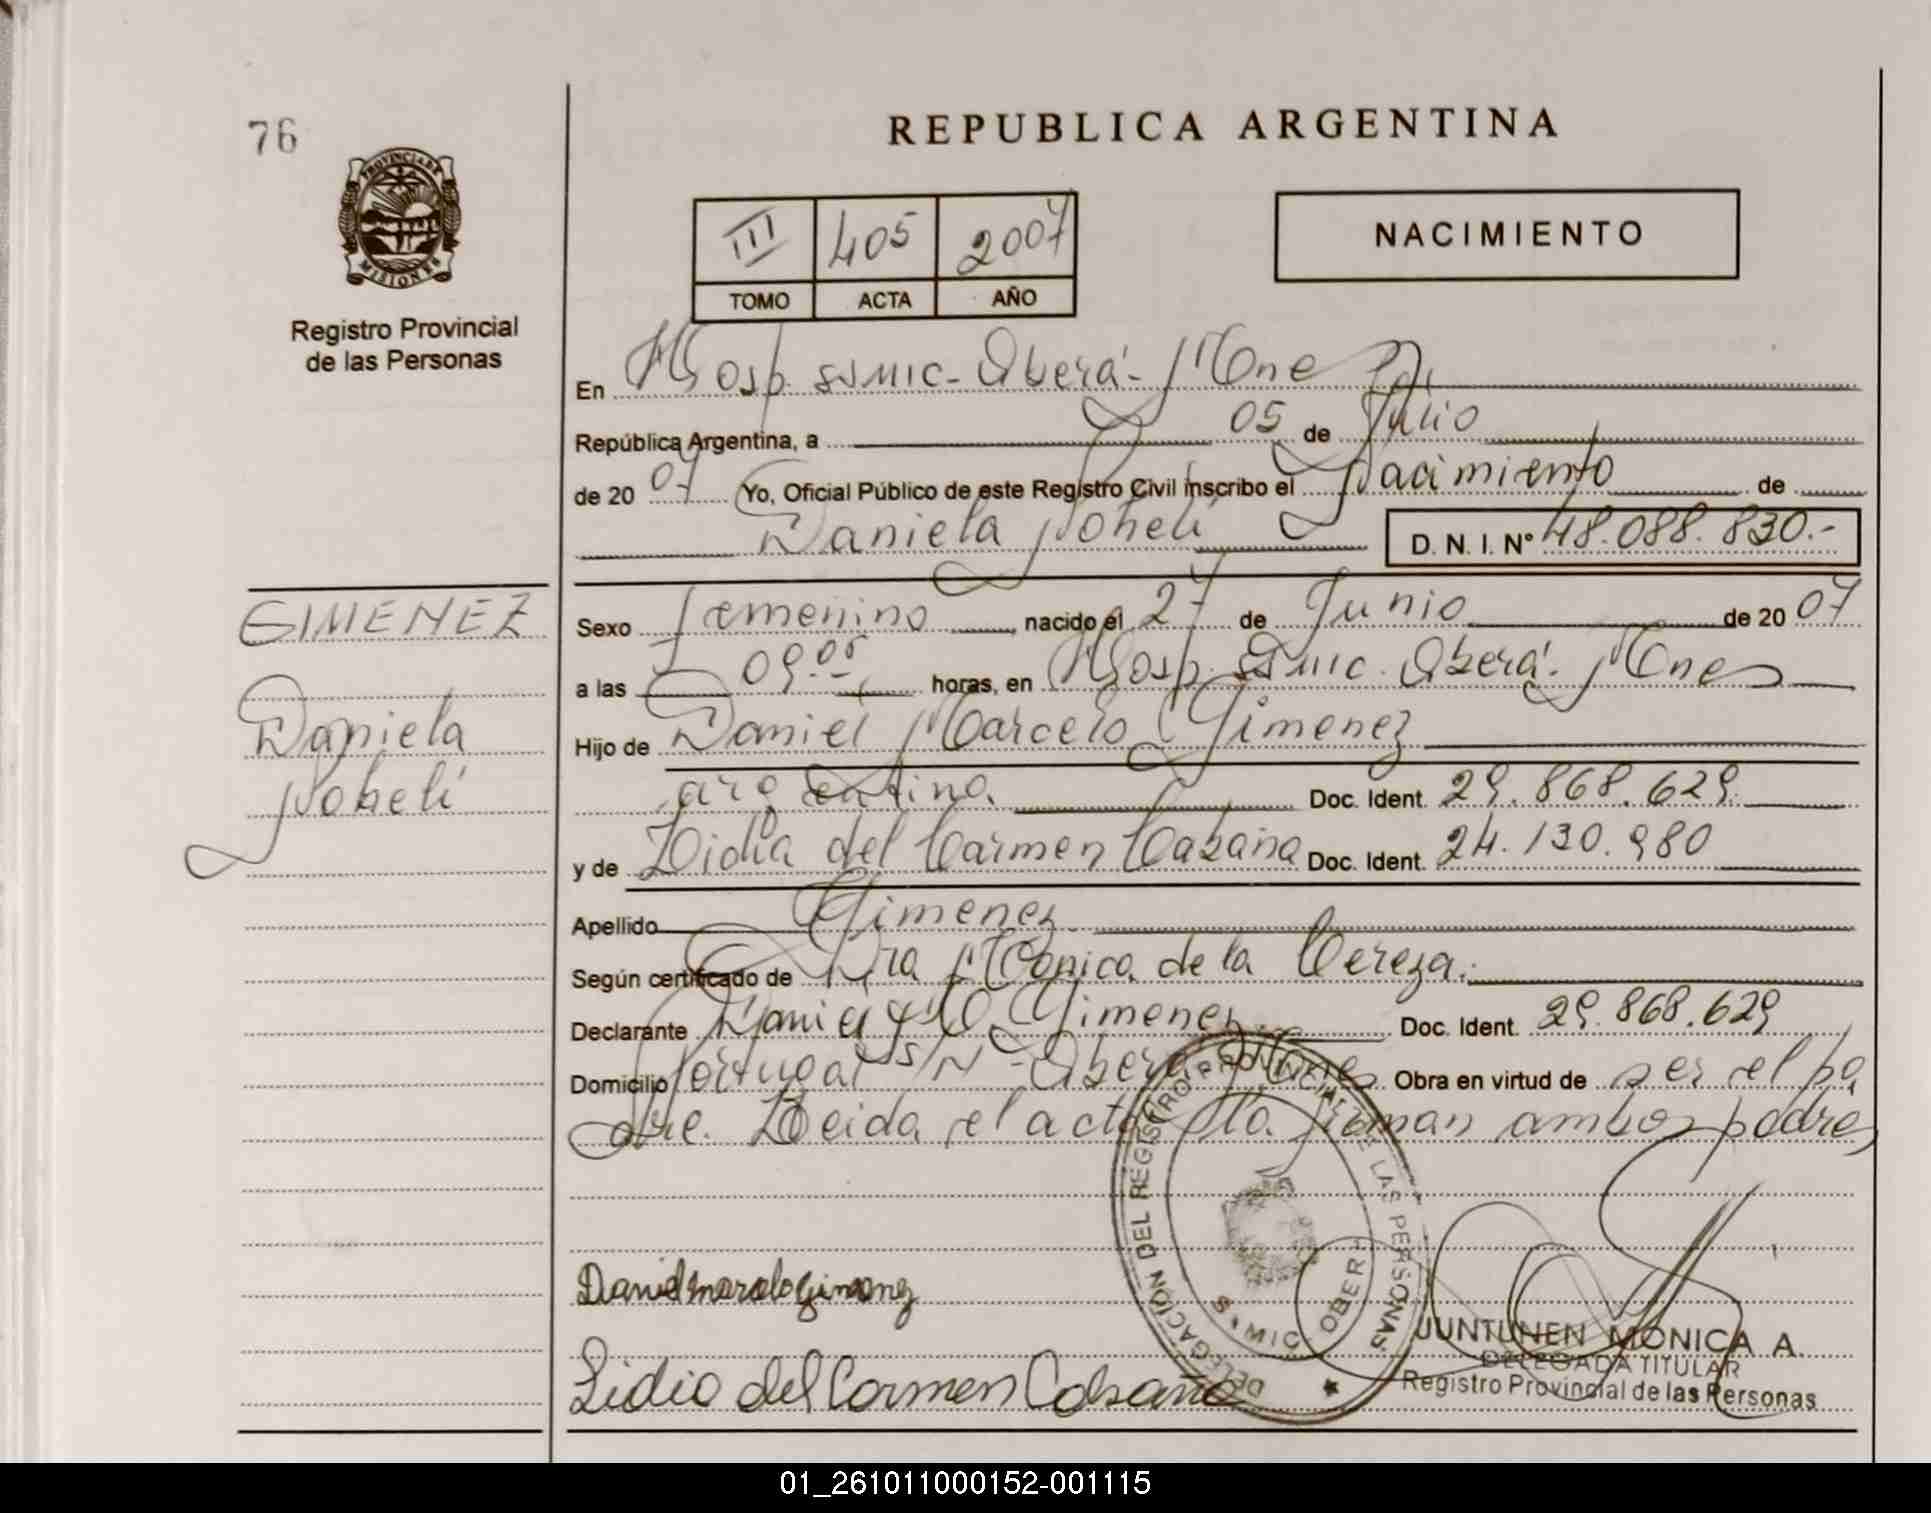 76
REPUBLICA ARGENTINA
PROVINCIA DE
MISIONES
Registro Provincial
de las Personas
III 405 2007
TOMO ACTA AÑO
NACIMIENTO
En Hosp. SSMIC - Oberá - Mnes
República Argentina, a 05 de Julio
de 20 07 Yo, Oficial Público de este Registro Civil inscribo el Nacimiento de
Daniela Noheli D. N. I. N° 48.088.830.-
GIMENEZ
Daniela
Noheli
Sexo femenino, nacido el 27 de Junio de 20 07
a las 09.05 horas, en Hosp. SSMIC. Oberá. Mnes
Hijo de Daniel Marcelo Gimenez
argentino. Doc. Ident. 29.868.629.
y de Lidia del Carmen Cabaña Doc. Ident. 24.130.980
Apellido Gimenez
Según certificado de Dra Mónica de la Cereza.
Declarante Daniel M. Gimenez Doc. Ident. 29.868.629
Domicilio Portugal S/N - Oberá Mnes Obra en virtud de ser el pa
dre. Leida el acta la firman ambos padres
Daniel Marcelo Gimenez
Lidia del Carmen Cabaña
DELEGACIÓN DEL REGISTRO PROVINCIAL DE LAS PERSONAS
S. MIC. OBERÁ
JUNTUNEN MONICA A.
DELEGADA TITULAR
Registro Provincial de las Personas
01_261011000152-001115